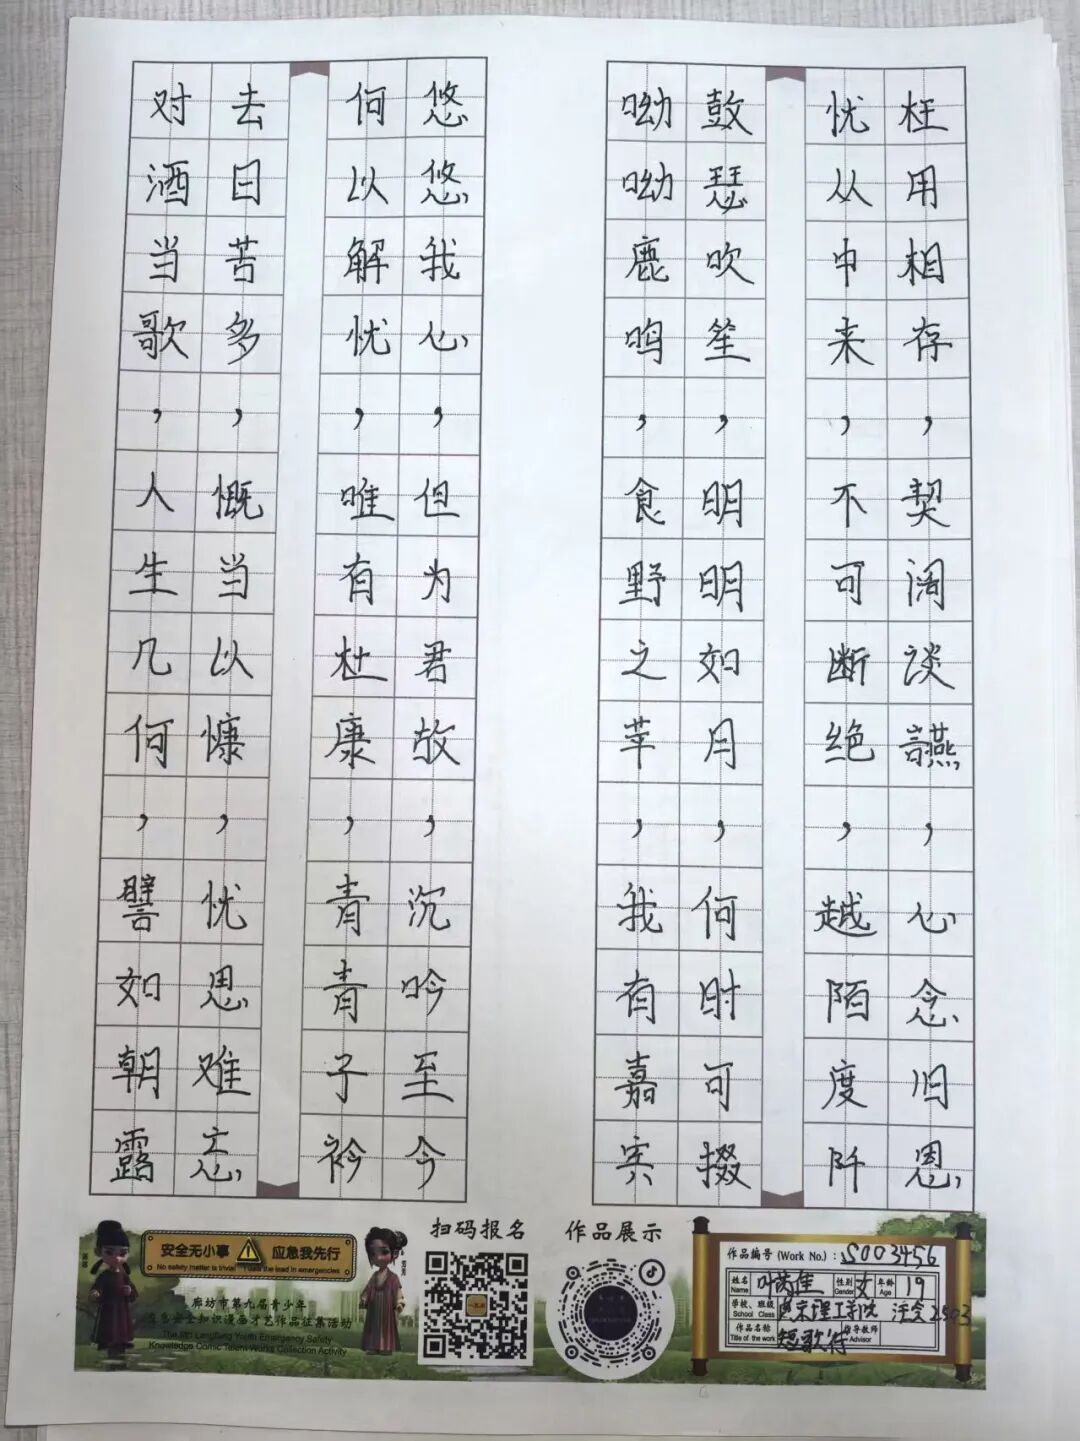 对酒当歌,人生几何,譬如朝露
去日苦多,慨当以慷,忧思难忘,
何以解忧,唯有杜康,青青子衿
悠悠我心,但为君故,沉吟至今
呦呦鹿鸣,食野之苹,我有嘉宾
鼓瑟吹笙,明明如月,何时可掇
忧从中来,不可断绝,越陌度阡
枉用相存,契阔谈讌,心念旧恩,
安全无小事 应急我先行
No safety matter is trivial I take the lead in emergencies
廊坊市第九届青少年
应急安全知识漫画才艺作品征集活动
The 9th Langfang Youth Emergency Safety
Knowledge Comic Talent Works Collection Activity
扫码报名
作品展示
作品编号 (Work No.) : S003456
姓名 Name 叶 佳 性别 Gender 女 年龄 Age 19
学校、班级 School Class 理工学院 2503
作品名称 Title of the work 短歌行 指导教师 Advisor